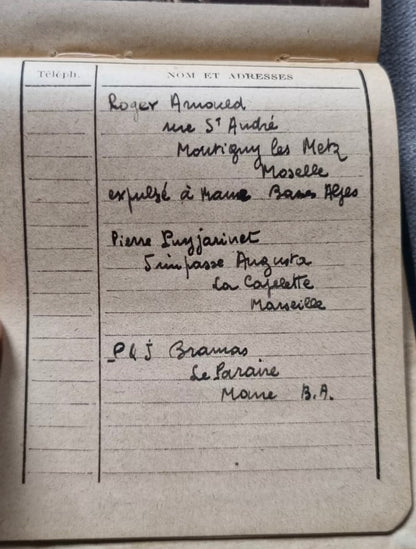 Téléph. NOM ET ADRESSES
Roger Arnould
rue St André
Montigny les Metz
Moselle
expulsé à Mane Basses Alpes
Pierre Puyjarinet
5 impasse Augusta
La Capelette
Marseille
P & J Bramas
Le Paraire
Mane B.A.